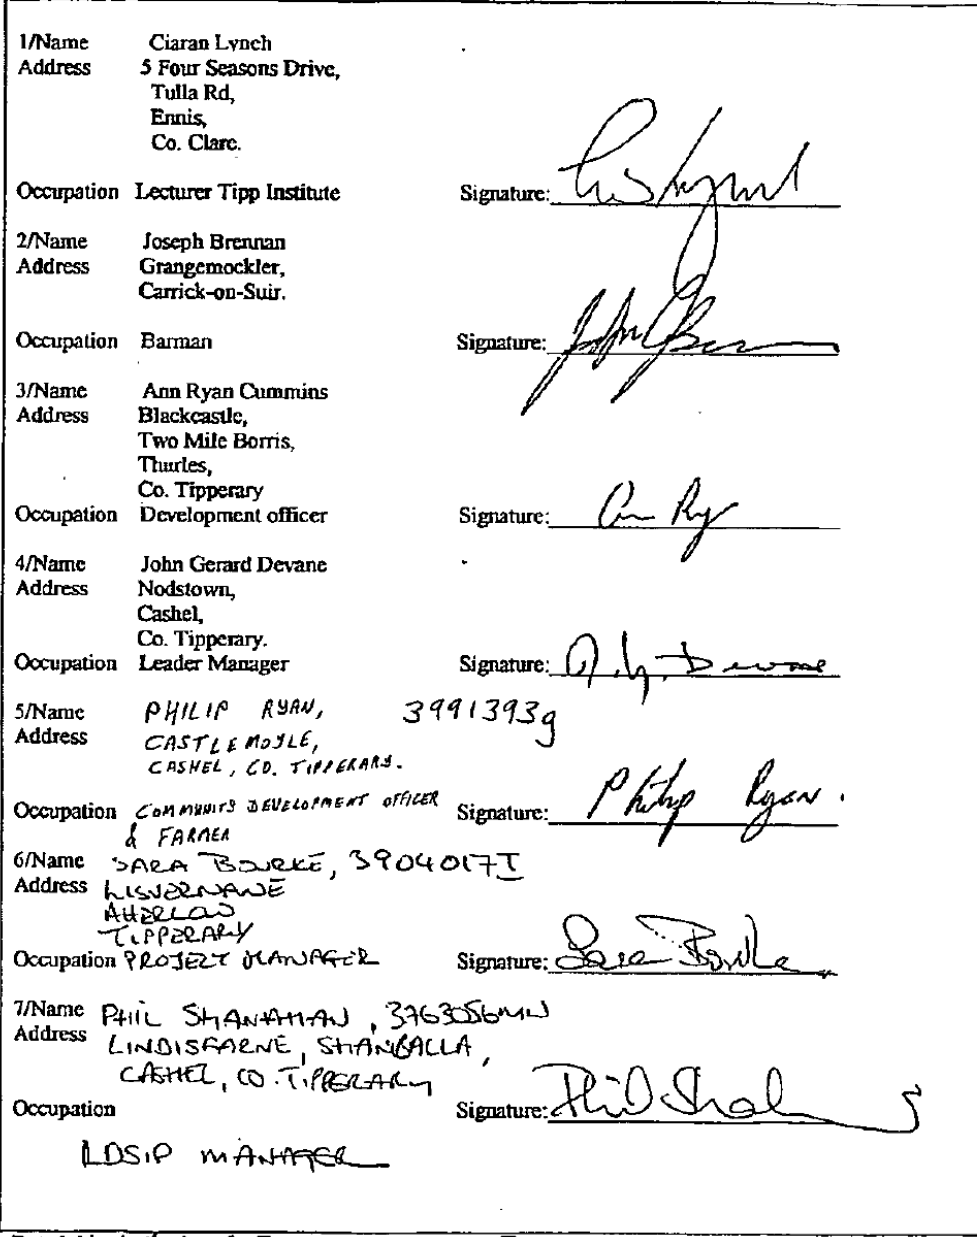 1/Name Ciaran Lynch
Address 5 Four Seasons Drive,
Tulla Rd,
Ennis,
Co. Clare.
Occupation Lecturer Tipp Institute Signature:
2/Name Joseph Brennan
Address Grangemockler,
Carrick-on-Suir.
Occupation Barman Signature:
3/Name Ann Ryan Cummins
Address Blackcastle,
Two Mile Borris,
Thurles,
Co. Tipperary
Occupation Development officer Signature: Ann Ry
4/Name John Gerard Devane
Address Nodstown,
Cashel,
Co. Tipperary.
Occupation Leader Manager Signature: J.G. Devane
5/Name PHILIP RYAN, 3991393g
Address CASTLEMOYLE,
CASHEL, CO. TIPPERARY.
Occupation COMMUNITY DEVELOPMENT OFFICER Signature: Philip Ryan.
& FARMER
6/Name SARA BOURKE, 3904017I
Address LISVERNANE
AHERLOW
TIPPERARY
Occupation PROJECT MANAGER Signature: Sara Bourke
7/Name PHIL SHANAHAN, 3763056MW
Address LINDISFARNE, SHANBALLA,
CASHEL, CO. TIPPERARY
Occupation Signature: Phil Shah
LDSIP MANAGER